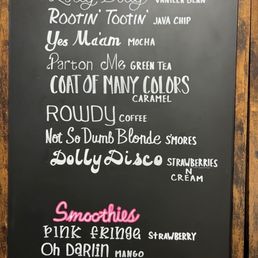 VANILLA BEAN
Rootin' Tootin' JAVA CHIP
Yes Ma'am MOCHA
Parton Me GREEN TEA
COAT OF MANY COLORS
CARAMEL
ROWDY COFFEE
Not So Dumb Blonde S'MORES
Dolly Disco STRAWBERRIES
N
CREAM
Smoothies
PINK FRINGE STRAWBERRY
Oh Darlin MANGO